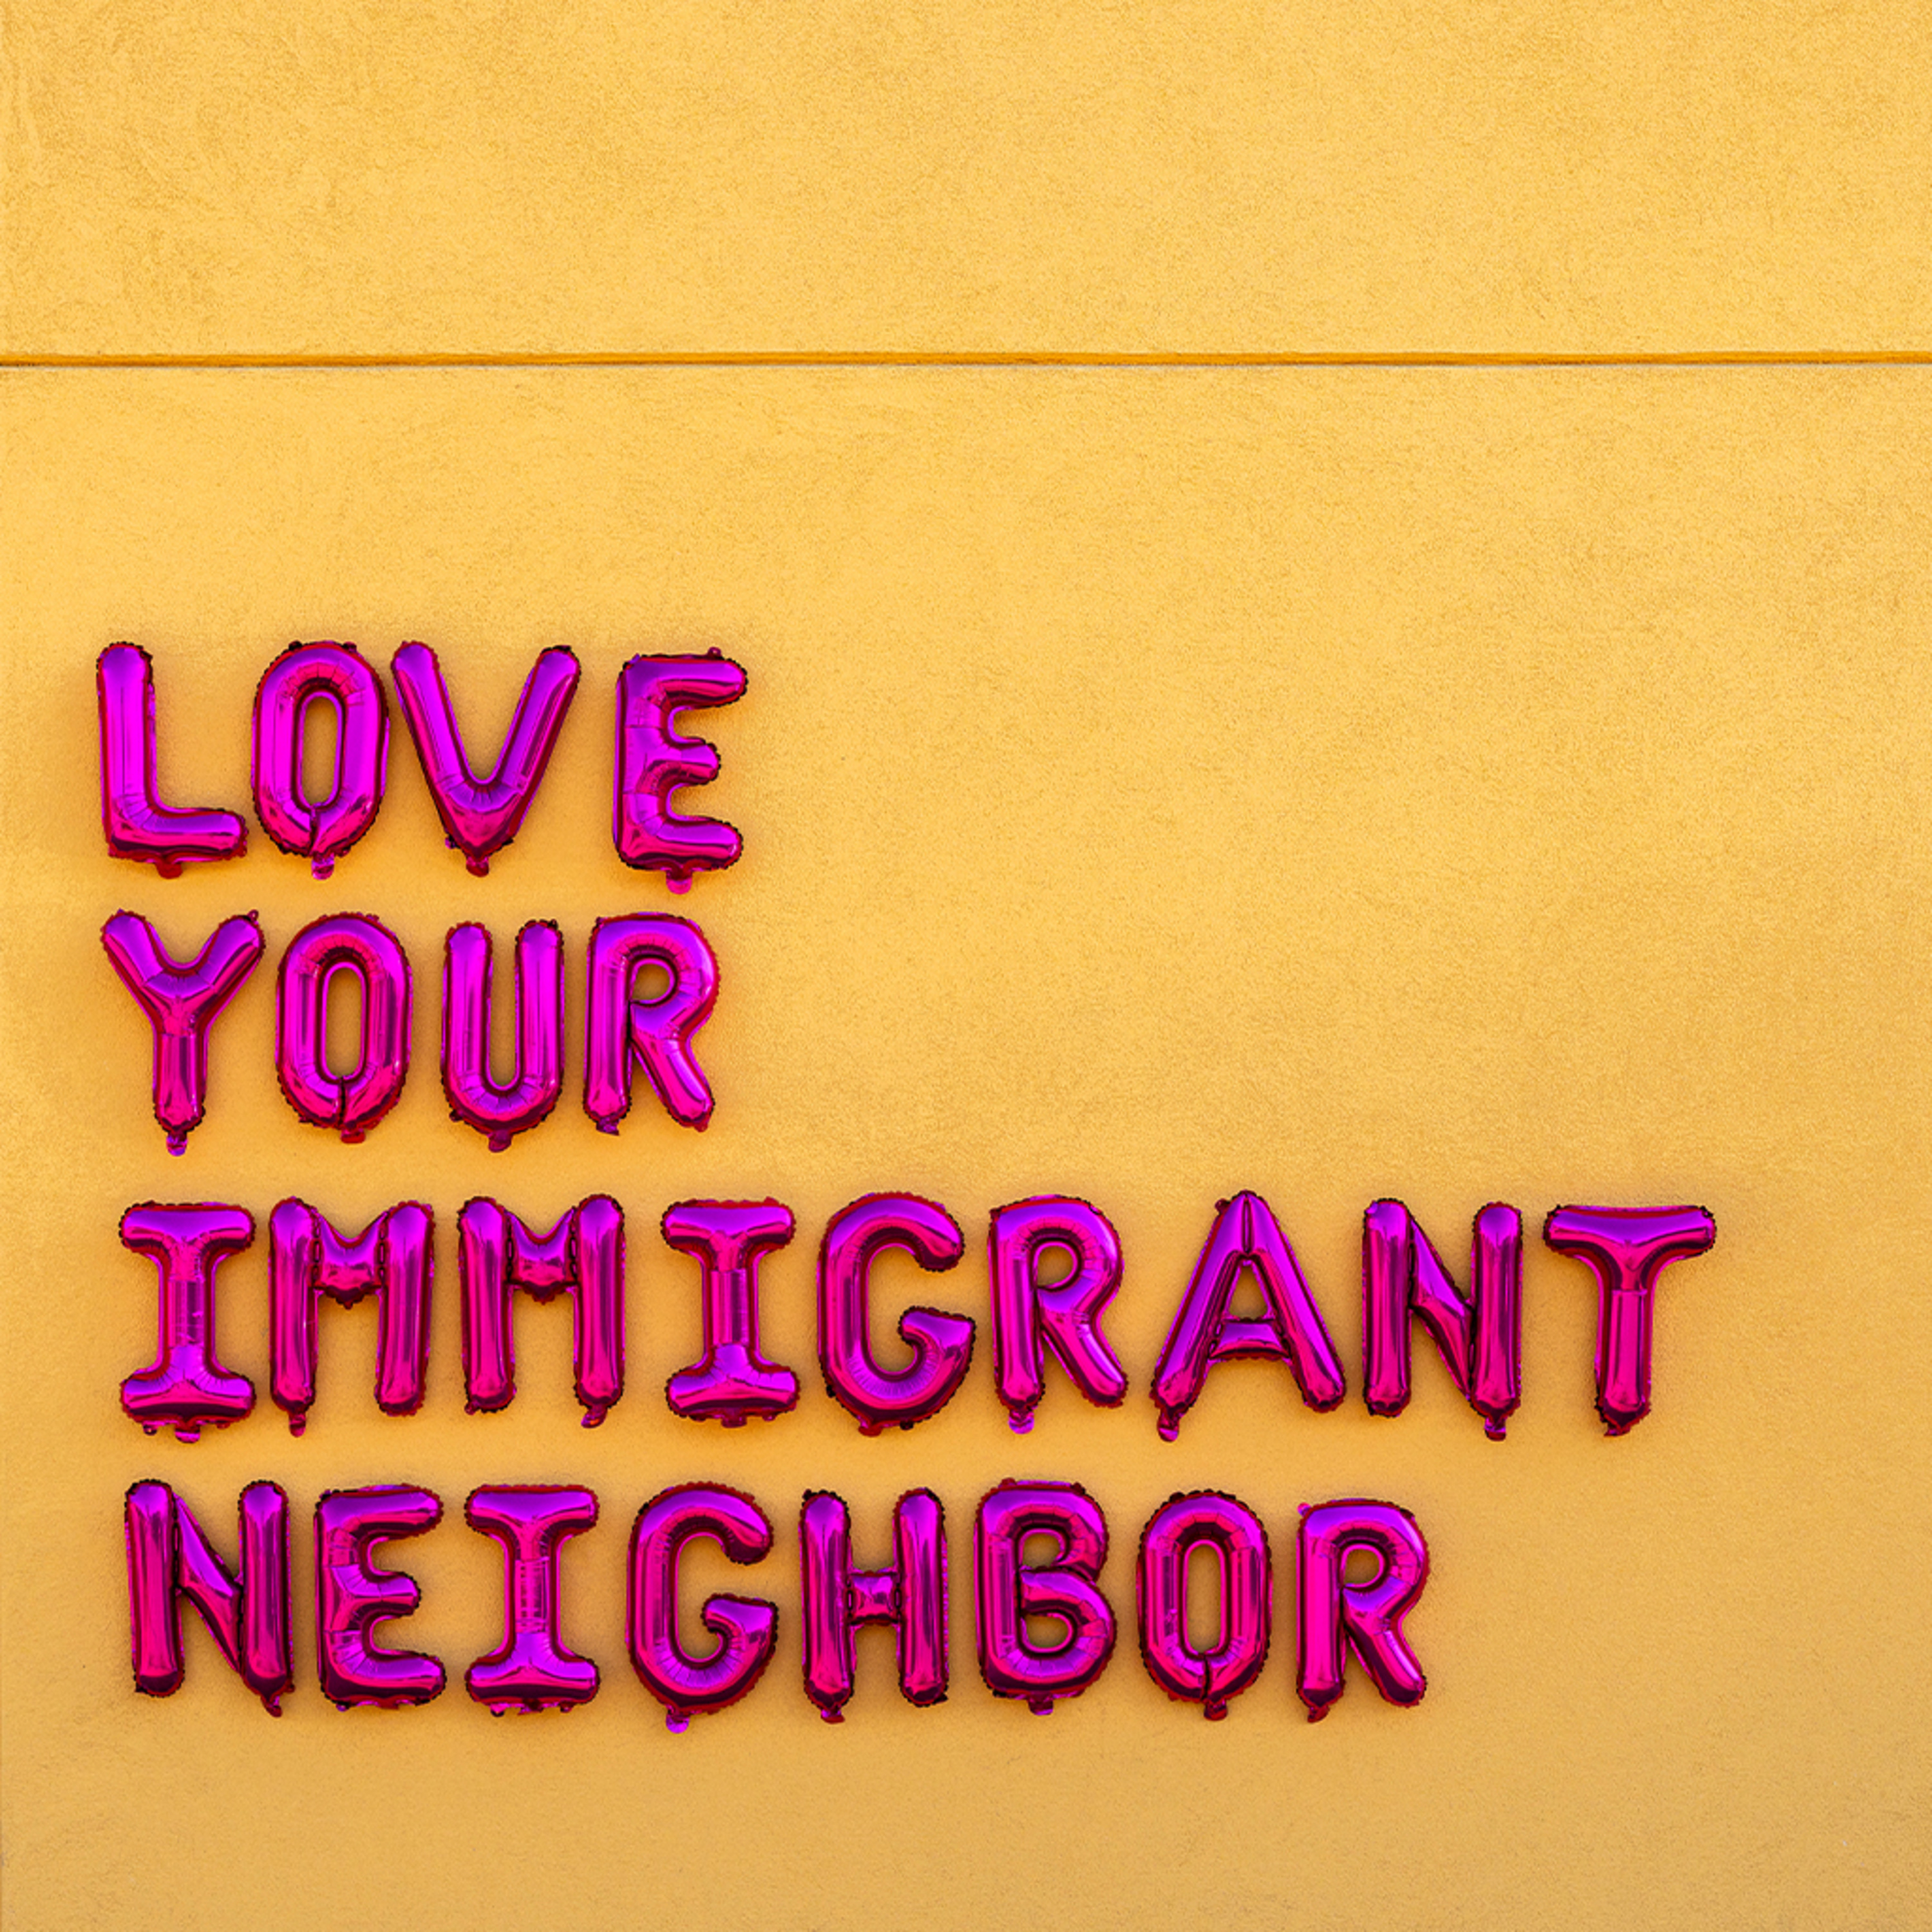 LOVE
YOUR
IMMIGRANT
NEIGHBOR